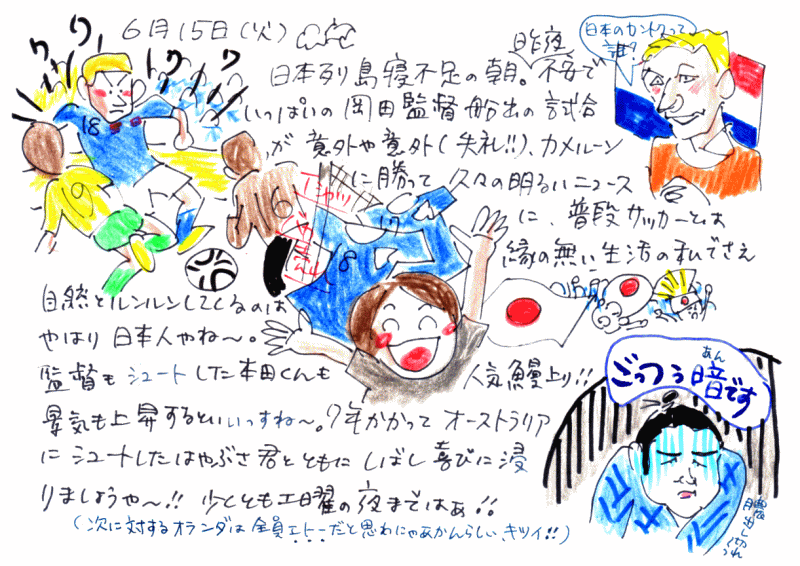 6月15日(火)
ワー ワー
日本のカントクって誰?
昨夜
日本列島寝不足の朝。不安で
いっぱいの岡田監督船出の試合
が意外や意外(失礼!!)、カメルーン
に勝って久々の明るいニュース
に、普段サッカーとは
縁の無い生活の私でさえ
自然とルンルンしてくるのは
やはり日本人やね〜。
監督もシュートした本田くんも
人気鰻上り!!
景気も上昇するといいっすね〜。7年かかってオーストラリア
にシュートしたはやぶさ君とともにしばし喜びに浸
りましょうや〜!! 少くとも土曜の夜まではぁ!!
(次に対するオランダは全員エトーだと思わにゃあかんらしい、キツイ!!)
あん
ごっつぅ暗です
18
9
6
18